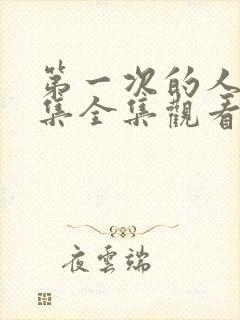 第一次的人
集全集觀看
夜雲端